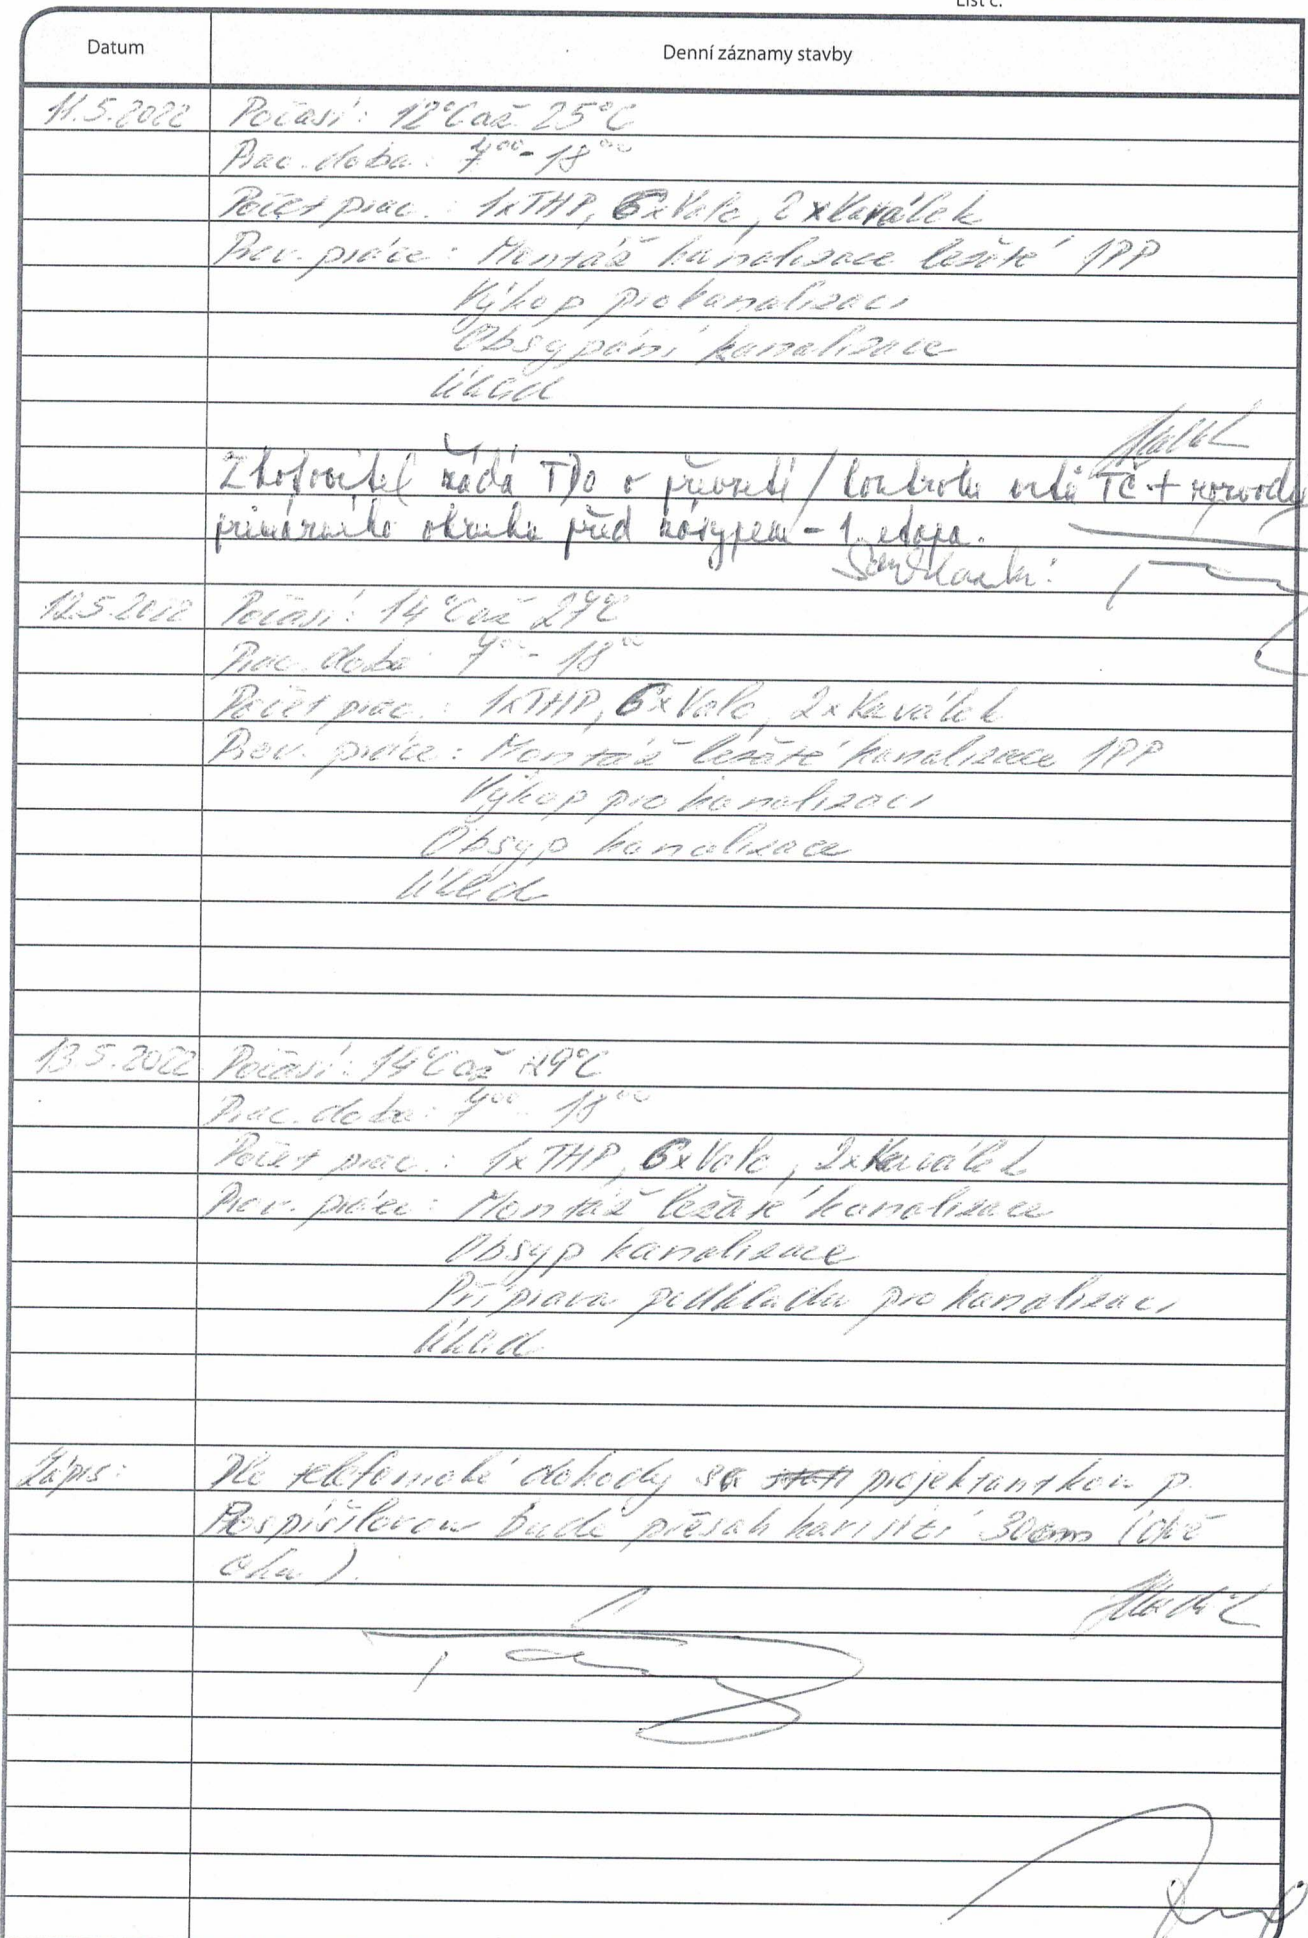 List č.
Datum Denní záznamy stavby
11.5.2022 Počasí: 12°C až 25°C
Prac. doba: 7⁰⁰ - 18⁰⁰
Počet prac.: 1xTHP, 6xValo, 2xKaválek
Prov. práce: Montáž kanalizace ležaté 1PP
Výkop pro kanalizaci
Obsypání kanalizace
Úklid
Zhotovitel žádá TDO o převzetí / kontrolu vrtů TČ + rozvody
primárního okruhu před zásypem - 1. etapa.
12.5.2022 Počasí: 14°C až 27°C
Prac. doba: 7⁰⁰ - 18⁰⁰
Počet prac.: 1xTHP, 6xValo, 2xKaválek
Prov. práce: Montáž ležaté kanalizace 1PP
Výkop pro kanalizaci
Obsyp kanalizace
Úklid
13.5.2022 Počasí: 14°C až 29°C
Prac. doba: 7⁰⁰ - 18⁰⁰
Počet prac.: 1xTHP, 6xValo, 2xKaválek
Prov. práce: Montáž ležaté kanalizace
Obsyp kanalizace
Příprava podkladu pro kanalizaci
Úklid
Zápis: Dle telefonické dohody s projektantkou p.
Pospíšilovou bude přesah kari sítí 30cm (dvě
oka).